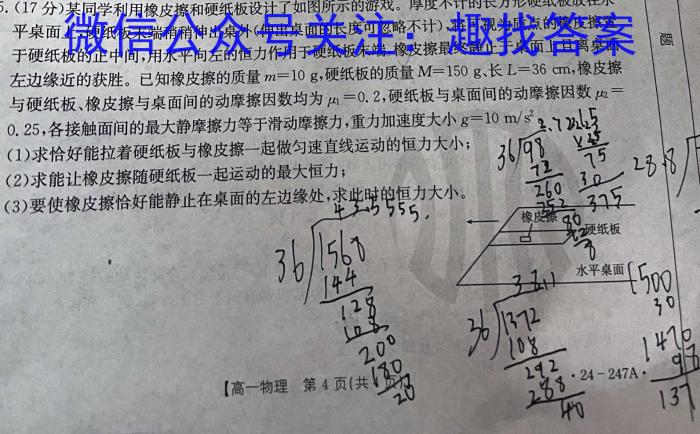 5.(17分)某同学利用橡皮擦和硬纸板设计了如图所示的游戏。厚度不计的长方形硬纸板放在水
平桌面上,硬纸板末端稍稍伸出桌外(伸出桌面的长度可忽略不计),将可视为质点的橡皮擦置
微信公众号关注:趣找答案
于硬纸板的正中间,用水平向左的恒力作用于硬纸板末端,橡皮擦最终静止于桌面上且离桌面
左边缘近的获胜。已知橡皮擦的质量m=10 g,硬纸板的质量M=150 g、长L=36 cm,橡皮擦
与硬纸板、橡皮擦与桌面间的动摩擦因数均为μ₁=0.2,硬纸板与桌面间的动摩擦因数μ₂=
0.25,各接触面间的最大静摩擦力等于滑动摩擦力,重力加速度大小g=10 m/s²。
(1)求恰好能拉着硬纸板与橡皮擦一起做匀速直线运动的恒力大小;
(2)求能让橡皮擦随硬纸板一起运动的最大恒力;
(3)要使橡皮擦恰好能静止在桌面的左边缘处,求此时的恒力大小。
题
36
98
72
260
252
80
72
8
75
30
375
28.8
橡皮擦
硬纸板
水平桌面
43.5555.
36
1568
144
128
108
200
180
20
36
1372
108
292
288
40
1500
30
1470
98
137
【高一物理 第4页(共
·24-247A·